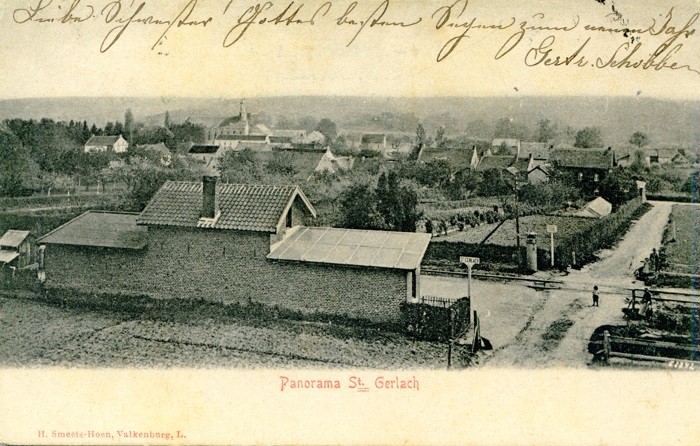 Liebe Schwester! Gottes besten Segen zum neuen Jahr
Gertr. Schobben
ST GERLACH
Panorama St. Gerlach
H. Smeets-Hoen, Valkenburg, L.